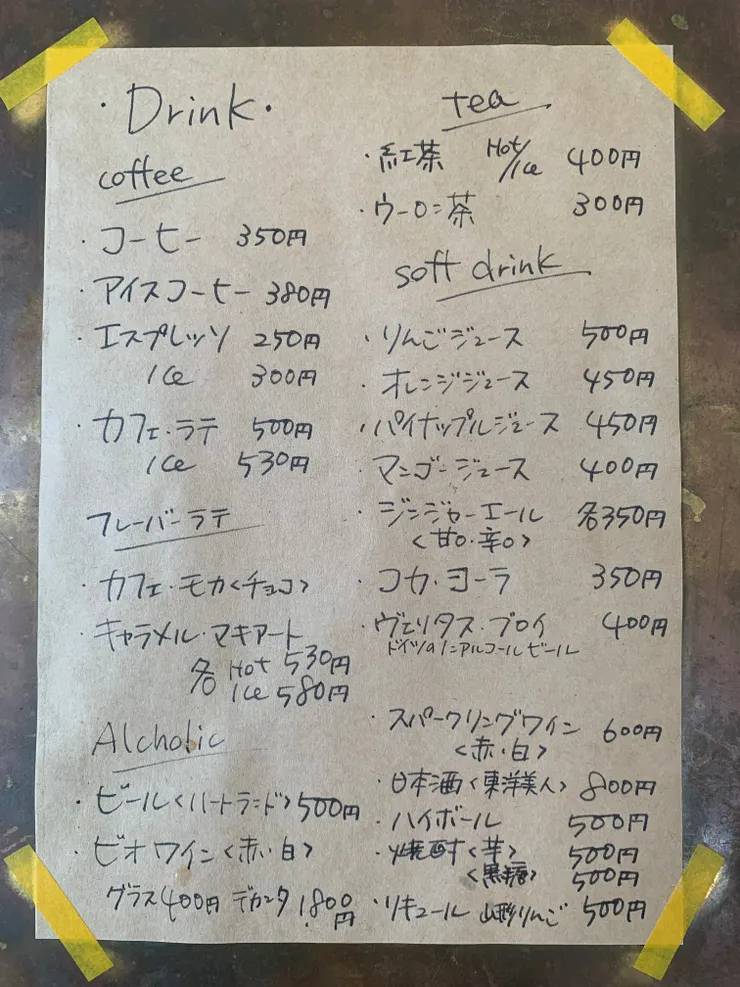 ・Drink・
coffee
・コーヒー 350円
・アイスコーヒー 380円
・エスプレッソ 250円
Ice 300円
・カフェ・ラテ 500円
Ice 530円
フレーバーラテ
・カフェ・モカ<チョコ>
・キャラメル・マキアート
各 Hot 530円
Ice 580円
Alcholic
・ビール<ハートランド>500円
・ビオワイン<赤・白>
グラス400円 デカンタ 1,800円
tea
・紅茶 Hot/Ice 400円
・ウーロン茶 300円
soft drink
・りんごジュース 500円
・オレンジジュース 450円
・パイナップルジュース 450円
・マンゴージュース 400円
・ジンジャーエール 各350円
<甘口・辛口>
・コカ・コーラ 350円
・ヴェリタス・ブロイ 400円
ドイツのノンアルコールビール
・スパークリングワイン 600円
<赤・白>
・日本酒<東洋美人> 800円
・ハイボール 500円
・焼酎<芋> 500円
<黒糖> 500円
・リキュール 山形りんご 500円